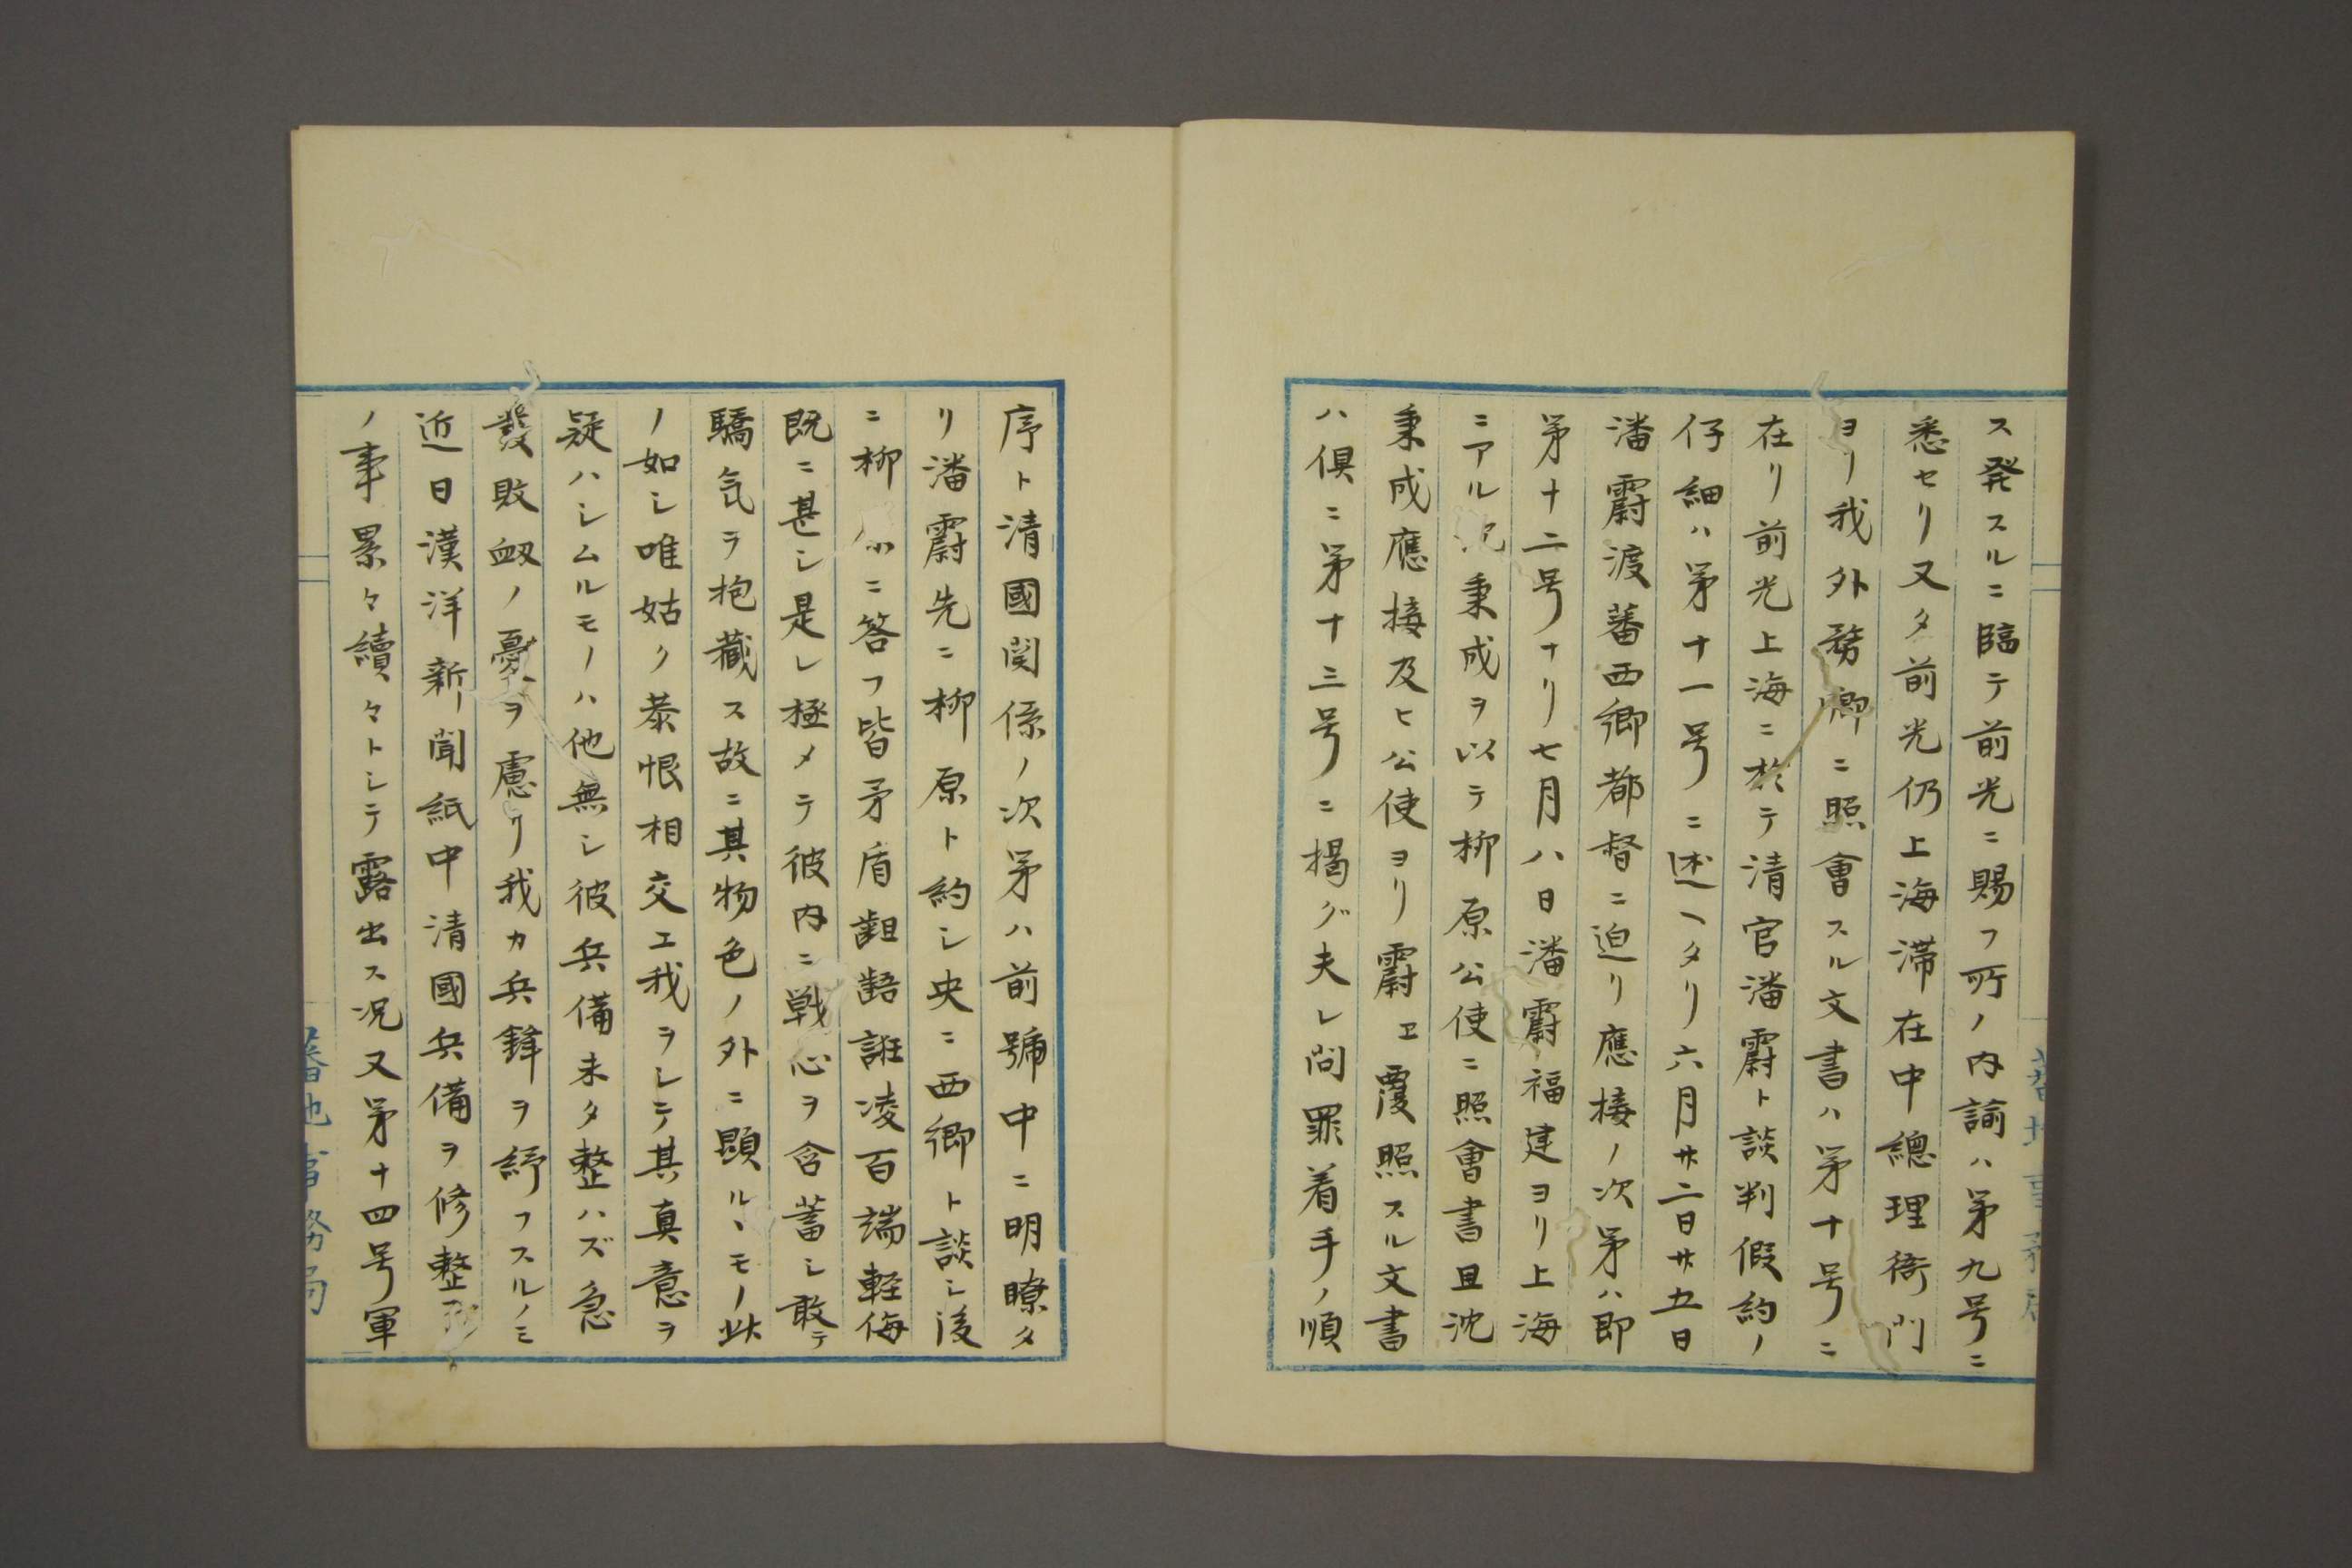 ス発スルニ臨テ前光ニ賜フ所ノ内諭ハ第九号ニ
悉セリ又タ前光仍上海滞在中總理衙門
ヨリ我外務卿ニ照會スル文書ハ第十号ニ
在リ前光上海ニ於テ清官潘霨ト談判假約ノ
仔細ハ第十一号ニ述ヘタリ六月廿二日廿五日
潘霨渡蕃西郷都督ニ迫リ應接ノ次第ハ即
第十二号ナリ七月八日潘霨福建ヨリ上海
ニアル沈秉成ヲ以テ柳原公使ニ照會書且沈
秉成應接及ヒ公使ヨリ霨ヱ覆照スル文書
ハ倶ニ第十三号ニ掲グ夫レ問罪着手ノ順
序ト清國関係ノ次第ハ前號中ニ明瞭タ
リ潘霨先ニ柳原ト約シ央ニ西郷ト談シ後
ニ柳原ニ答フ皆矛盾齟齬誑凌百端軽侮
既ニ甚シ是レ極メテ彼内ニ戦心ヲ含蓄シ敢テ
驕気ヲ抱蔵ス故ニ其物色ノ外ニ顕ルヽモノ此
ノ如シ唯姑ク恭恨相交エ我ヲシテ其真意ヲ
疑ハシムルモノハ他無シ彼兵備未タ整ハズ急
發敗衂ノ憂ヲ慮リ我カ兵鋒ヲ紓フスルノミ
近日漢洋新聞紙中清國兵備ヲ修整
ノ事累々續々トシテ露出ス况又第十四号軍
蕃地事務局